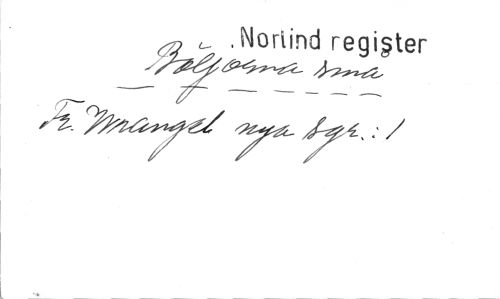 Norlind register
Böljorna små
Fr. Wrangel nya sgr. : 1